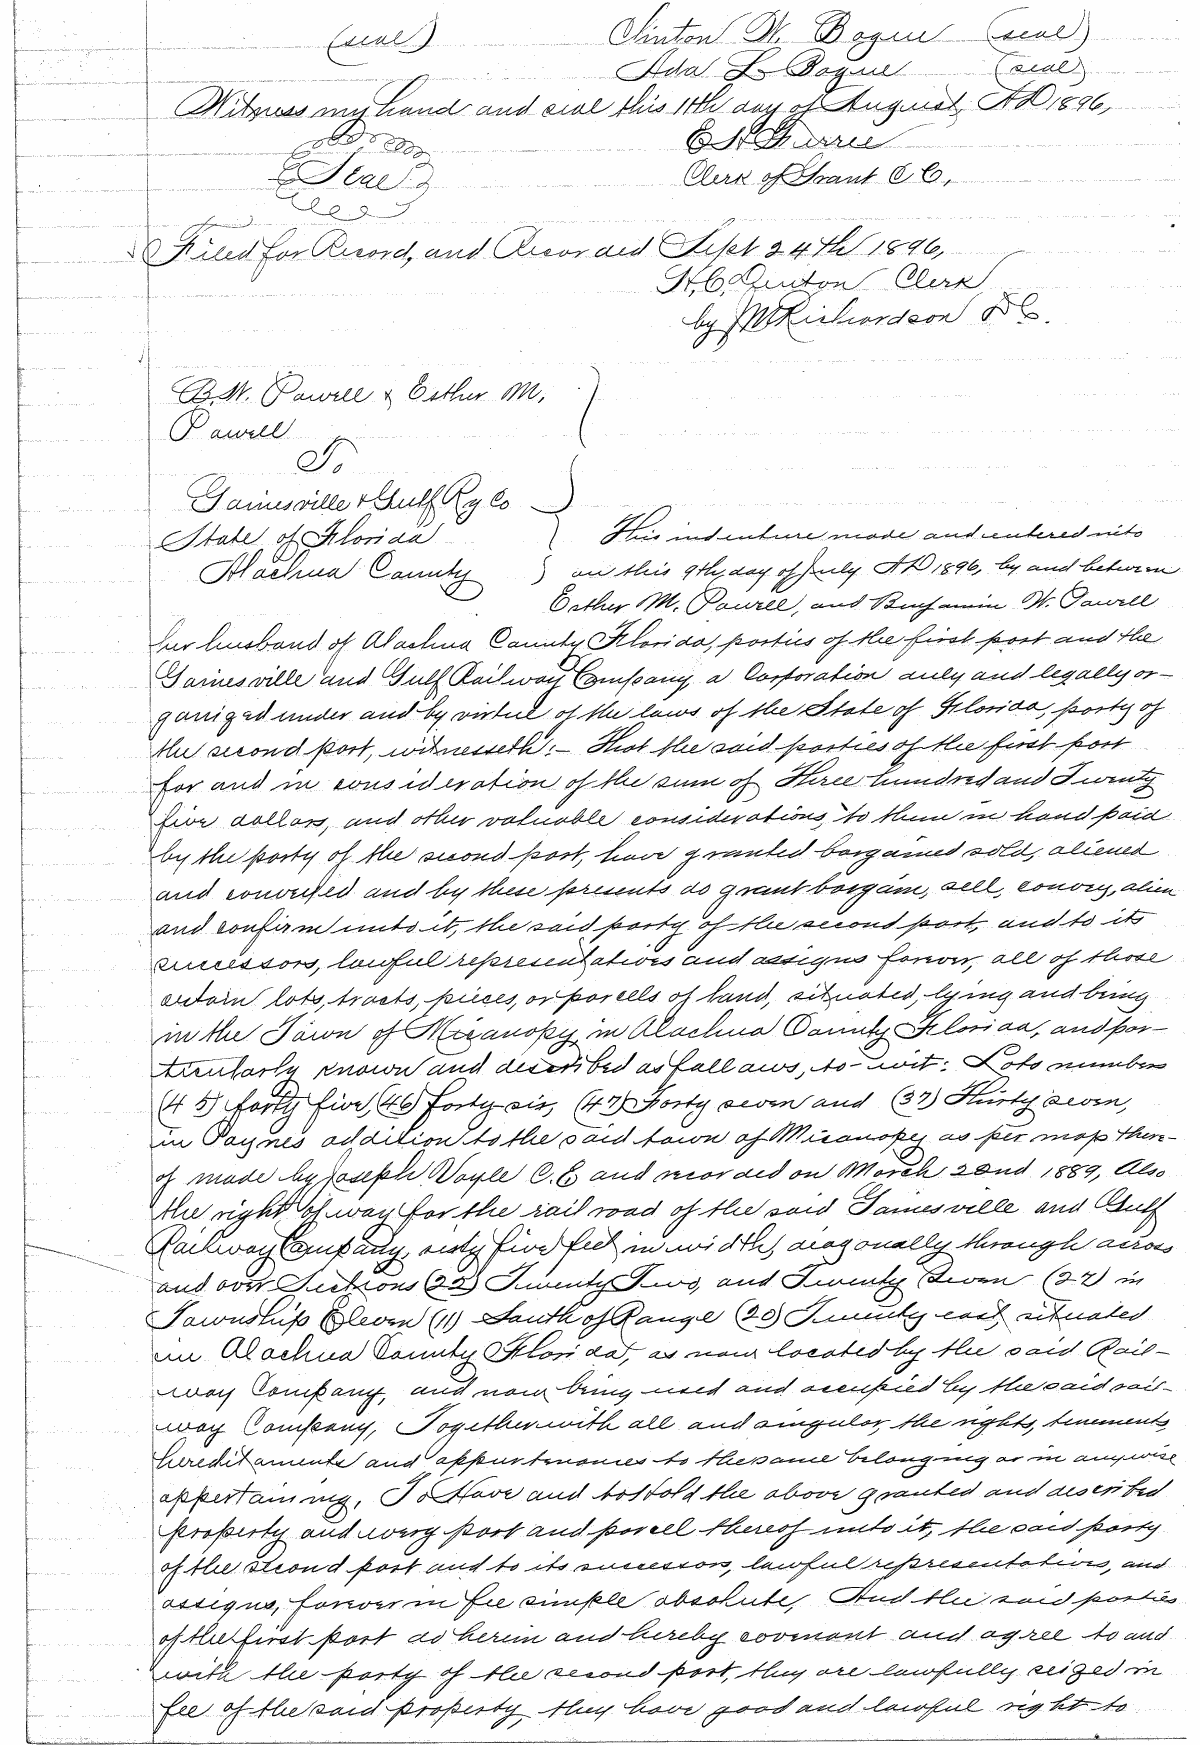 (seal) Clinton W. Bogue (seal)
Ada L. Bogue (seal)
Witness my hand and seal this 11th day of August, AD 1896,
Seal
Clerk of Grant C C,
Filed for Record, and Recorded Sept 24th 1896,
H.C. Denton Clerk
by M Richardson D C.
B. W. Powell & Esther M.
Powell
To
Gainesville & Gulf Ry Co
State of Florida This indenture made and entered into
Alachua County on this 9th, day of July AD 1896, by and between
Esther M. Powell, and Benjamin W. Powell
her husband of Alachua County Florida, parties of the first part and the
Gainesville and Gulf Railway Company a Corporation duly and legally or-
ganized under and by virtue of the laws of the State of Florida, party of
the second part, witnesseth:- That the said parties of the first part
for and in consideration of the sum of Three hundred and Twenty
five dollars, and other valuable considerations, to them in hand paid
by the party of the second part, have granted bargained sold, aliened
and conveyed and by these presents do grant bargain, sell, convey, alien
and confirm unto it, the said party of the second part, and to its
successors, lawful representatives and assigns forever, all of those
certain lots, tracts, pieces, or parcells of land, situated, lying and being
in the Town of Micanopy, in Alachua County Florida, and par-
ticularly known and described as follows, to-wit: Lots numbers
(45) forty five, (46) Forty six, (47) Forty seven and (37) Thirty seven,
in Paynes addition to the said town of Micanopy as per map there-
of made by Joseph Voyle C.E and recorded on March 22nd 1889, Also
the right of way for the rail road of the said Gainesville and Gulf
Railway Company, sixty five feet in width, diagonally through across
and over Sections (22) Twenty Two, and Twenty Seven (27) in
Township Eleven (11) South of Range (20) Twenty east, situated
in Alachua County Florida, as now located by the said Rail-
way Company, and now being used and occupied by the said rail-
way Company, Together with all and singular, the rights, tenements,
hereditaments and appurtenances to the same belonging or in anywise
appertaining, To Have and to Hold the above granted and described
property and every part and parcell thereof unto it, the said party
of the second part and to its successors, lawful representatives, and
assigns, forever in fee simple absolute, And the said parties
of the first part do herein and hereby covenant and agree to and
with the party of the second part, they are lawfully seized in
fee of the said property, they have good and lawful right to